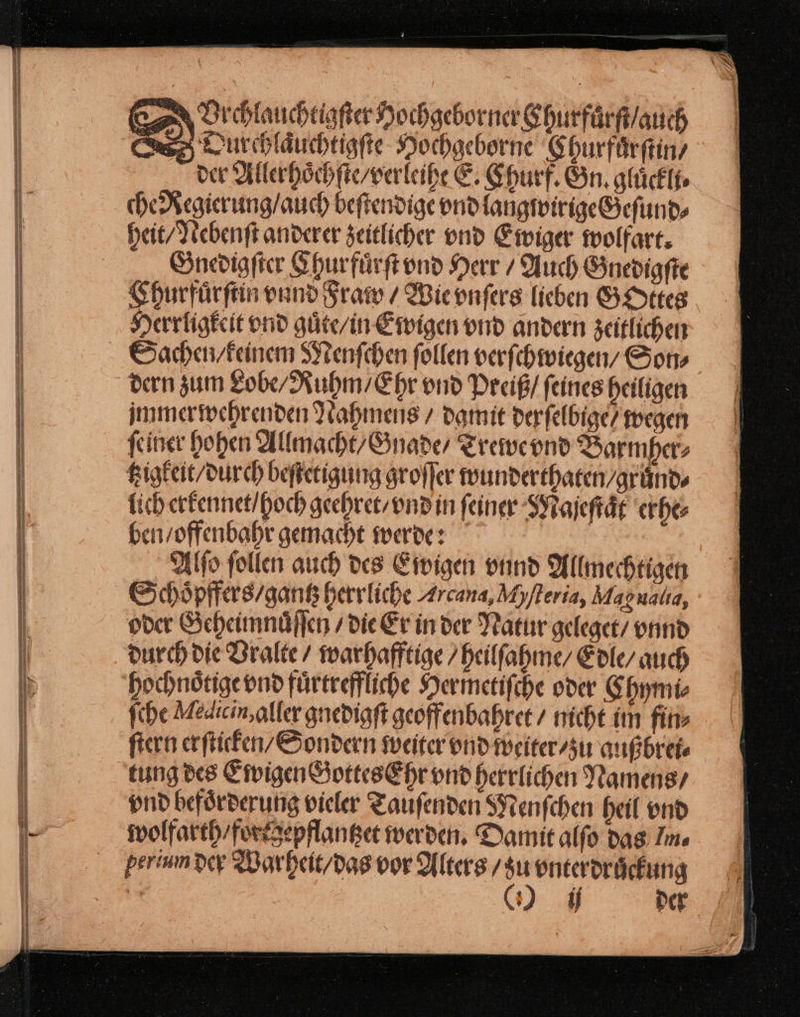 DVrchlauchtigſter Hochgeborner Churfuͤrſt/auch
Durchlaͤuchtigſte Hochgeborne Churfuͤrſtin/
der Allerhoͤchſte/verleihe E. Churf. Gn. gluͤckli⸗
che Regierung/auch beſtendige vnd langwirige Geſund⸗
heit/Nebenſt anderer zeitlicher vnd Ewiger wolfart.
Gnedigſter Churfuͤrſt vnd Herr / Auch Gnedigſte
Churfuͤrſtin vnnd Fraw / Wie vnſers lieben GOttes
Herrligkeit vnd guͤte/in Ewigen vnd andern zeitlichen
Sachen/keinem Menſchen ſollen verſchwiegen/ Son⸗
dern zum Lobe/Ruhm/Ehr vnd Preiß/ ſeines heiligen
jmmerwehrenden Nahmens / damit derſelbige/ wegen
ſeiner hohen Allmacht/Gnade/ Trewe vnd Barmher⸗
tzigkeit/durch beſtetigung groſſer wunderthaten/gruͤnd⸗
lich erkennet/hoch geehret/vnd in ſeiner Majeſtaͤt erhe⸗
ben/offenbahr gemacht werde:
Alſo ſollen auch des Ewigen vnnd Allmechtigen
Schoͤpffers/gantz herrliche Arcana, Myſteria, Magnalia,
oder Geheimnuͤſſen / die Er in der Natur geleget/ vnnd
durch die Vralte / warhafftige / heilſahme/ Edle/ auch
hochnoͤtige vnd fuͤrtreffliche Hermetiſche oder Chymi⸗
ſche Medicin, aller gnedigſt geoffenbahret / nicht im fin⸗
ſtern erſticken/Sondern weiter vnd weiter/zu außbrei⸗
tung des Ewigen Gottes Ehr vnd herrlichen Namens/
vnd befoͤrderung vieler Tauſenden Menſchen heil vnd
wolfarth/fortgepflantzet werden. Damit alſo das Im⸗
perium der Warheit/das vor Alters / zu vnterdruͤckung
(:) ij der